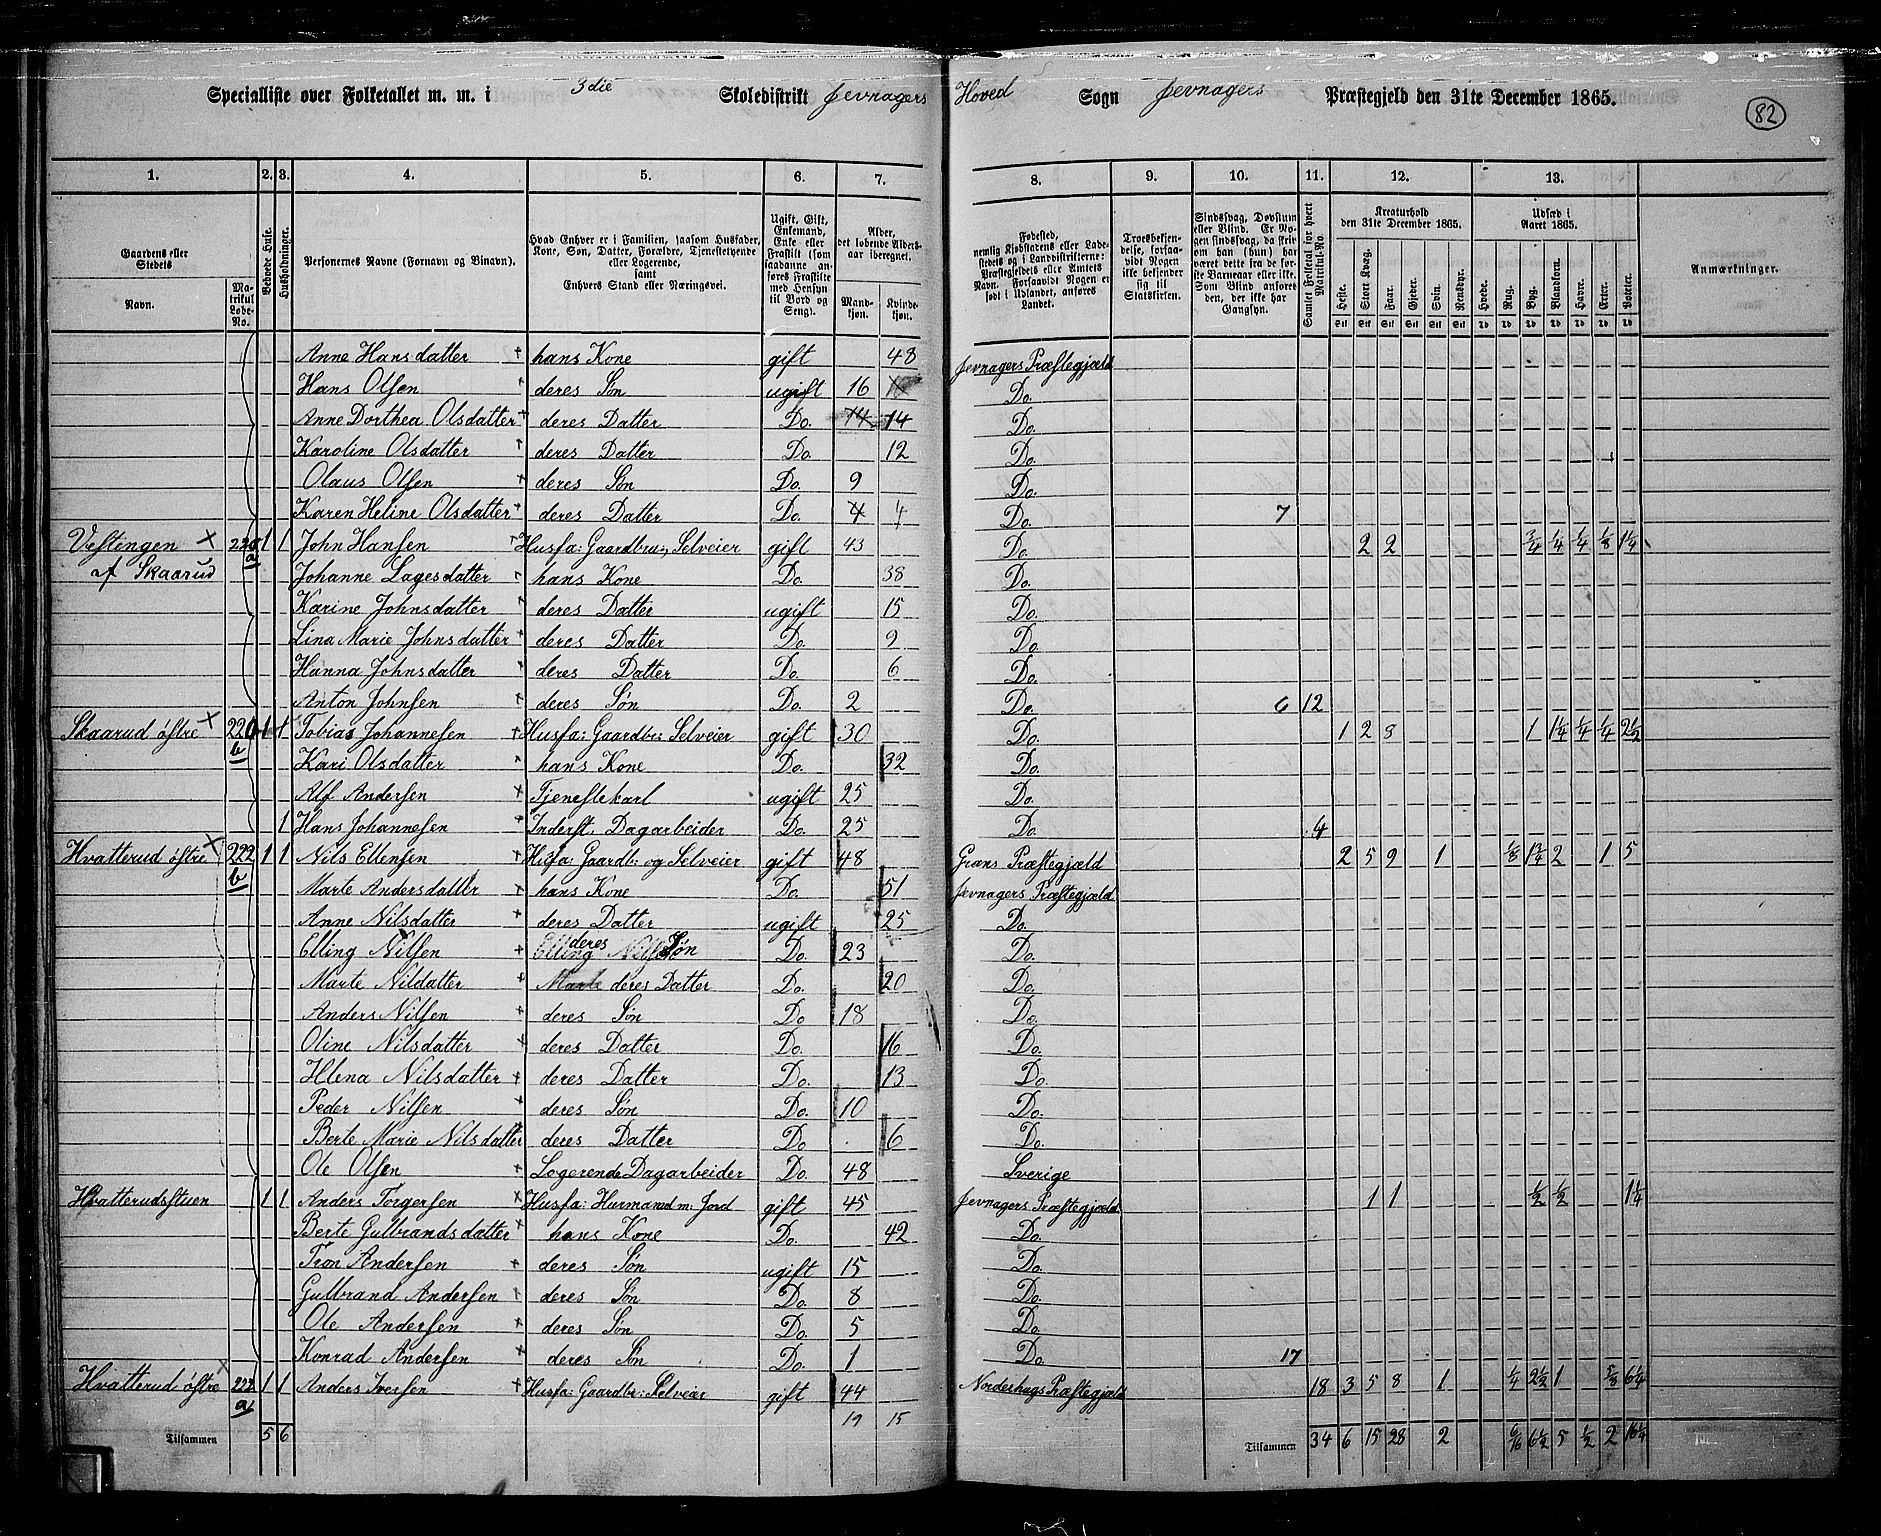 Specialliste over Folketallet m. m. i 3die Skoledistrikt Jevnagers Hoved Sogn Jevnagers Præstegjeld den 31te December 1865.
82
1. 2. 3. 4. 5. 6. 7. 8. 9. 10. 11. 12. 13.
Gaardens eller Stedets Navn. Matrikul Løbe-No. Beboede Huse. Husholdninger. Personernes Navne (Fornavn og Binavn). Hvad Enhver er i Familien, saasom Husfader, Kone, Søn, Datter, Forældre, Tjenestetyende eller Logerende, samt Enhvers Stand eller Næringsvei. Ugift, Gift, Enkemand, Enke eller Fraskilt (som saadanne anføres Fraskilte med Hensyn til Bord og Seng). Alder, det løbende Aldersaar iberegnet. Mandkjøn. Kvindekjøn. Fødested, nemlig Kjøbstadens eller Ladestedets og i Landdistrikterne: Præstegjeldets eller Amtets Navn. Forsaavidt Nogen er født i Udlandet, anføres Landet. Troesbekjendelse, forsaavidt Nogen ikke bekjender sig til Statskirken. Sindssvag, Døvstum eller Blind. Er Nogen sindssvag, da skrives om han (hun) har været dette fra de første Barneaar eller ikke. Som Blind anføres den, der ikke har Gangsyn. Samlet Folketal for hvert Matrikul-No. Kreaturhold den 31te December 1865. Heste. Stort Kvæg. Faar. Gjeder. Svin. Rensdyr. Udsæd i Aaret 1865. Hvede. Rug. Byg. Blandkorn. Havre. Erter. Poteter. Anmærkninger.
Anne Hansdatter hans Kone gift 48 Jevnagers Præstegjæld
Hans Olsen deres Søn ugift 16 Do.
Anne Dorthea Olsdatter deres Datter Do. 14 14 Do.
Karoline Olsdatter deres Datter Do. 12 Do.
Olaus Olsen deres Søn Do. 9 Do.
Karen Heline Olsdatter deres Datter Do. 4 4 Do. 7
Vestengen 220 1 1 John Hansen Husfa: Gaardbru:, Selveier gift 43 Do. 2 2 3/4 1/4 1/4 1/8 1 1/4
af Skaarud a Johanne Lagesdatter hans Kone Do. 38 Do.
Karine Johnsdatter deres Datter ugift 15 Do.
Lina Marie Johnsdatter deres Datter Do. 9 Do.
Hanna Johnsdatter deres Datter Do. 6 Do.
Anton Johnsen deres Søn Do. 2 Do. 6 12
Skaarud østre 220 1 1 Tobias Johannesen Husfa: Gaardbr: Selveier gift 30 Do. 1 2 8 1 1 1/4 1/4 1/4 2 1/2
b Kari Olsdatter hans Kone Do. 32 Do.
Alf Andersen Tjenestekarl ugift 25 Do.
1 Hans Johannesen Inderst, Dagarbeider Do. 25 Do. 4
Hvatterud østre 222 1 1 Nils Ellensen Husfa: Gaardb: og Selveier gift 48 Grans Præstegjæld 2 5 9 1 1/8 1 3/4 2 1 5
b Marte Andersdatter hans Kone Do. 51 Jevnagers Præstegjæld
Anne Nilsdatter deres Datter ugift 25 Do.
Elling Nilsen deres Søn Do. 23 Do.
Marte Nildatter deres Datter Do. 20 Do.
Anders Nilsen deres Søn Do 18 Do.
Oline Nilsdatter deres Datter Do. 16 Do.
Hlena Nilsdatter deres Datter Do. 13 Do.
Peder Nilsen deres Søn Do. 10 Do.
Berte Marie Nilsdatter deres Datter Do 6 Do.
Ole Olsen Logerende Dagarbeider Do. 48 Sverige
Hvatterudstuen 1 1 Anders Torgersen Husfa: Husmand m: Jord gift 45 Jevnagers Præstegjæld 1 1 1/2 1/2 1 1/4
Berte Gulbrandsdatter hans Kone Do. 42 Do.
Tron Andersen deres Søn ugift 15 Do.
Gulbrand Andersen deres Søn Do. 8 Do.
Ole Andersen deres Søn Do. 5 Do.
Konrad Andersen deres Søn Do. 1 Do. 17
Hvatterud østre 222 1 1 Anders Iversen Husfa: Gaardbr: Selveier gift 44 Norderhugs Præstegjæld 18 3 5 8 1 1/4 2 1/2 1 5/8 6 1/4
a 19 15
Tilsammen 5 6 Tilsammen 34 6 15 28 2 6/16 6 1/2 5 1/2 2 16 1/4